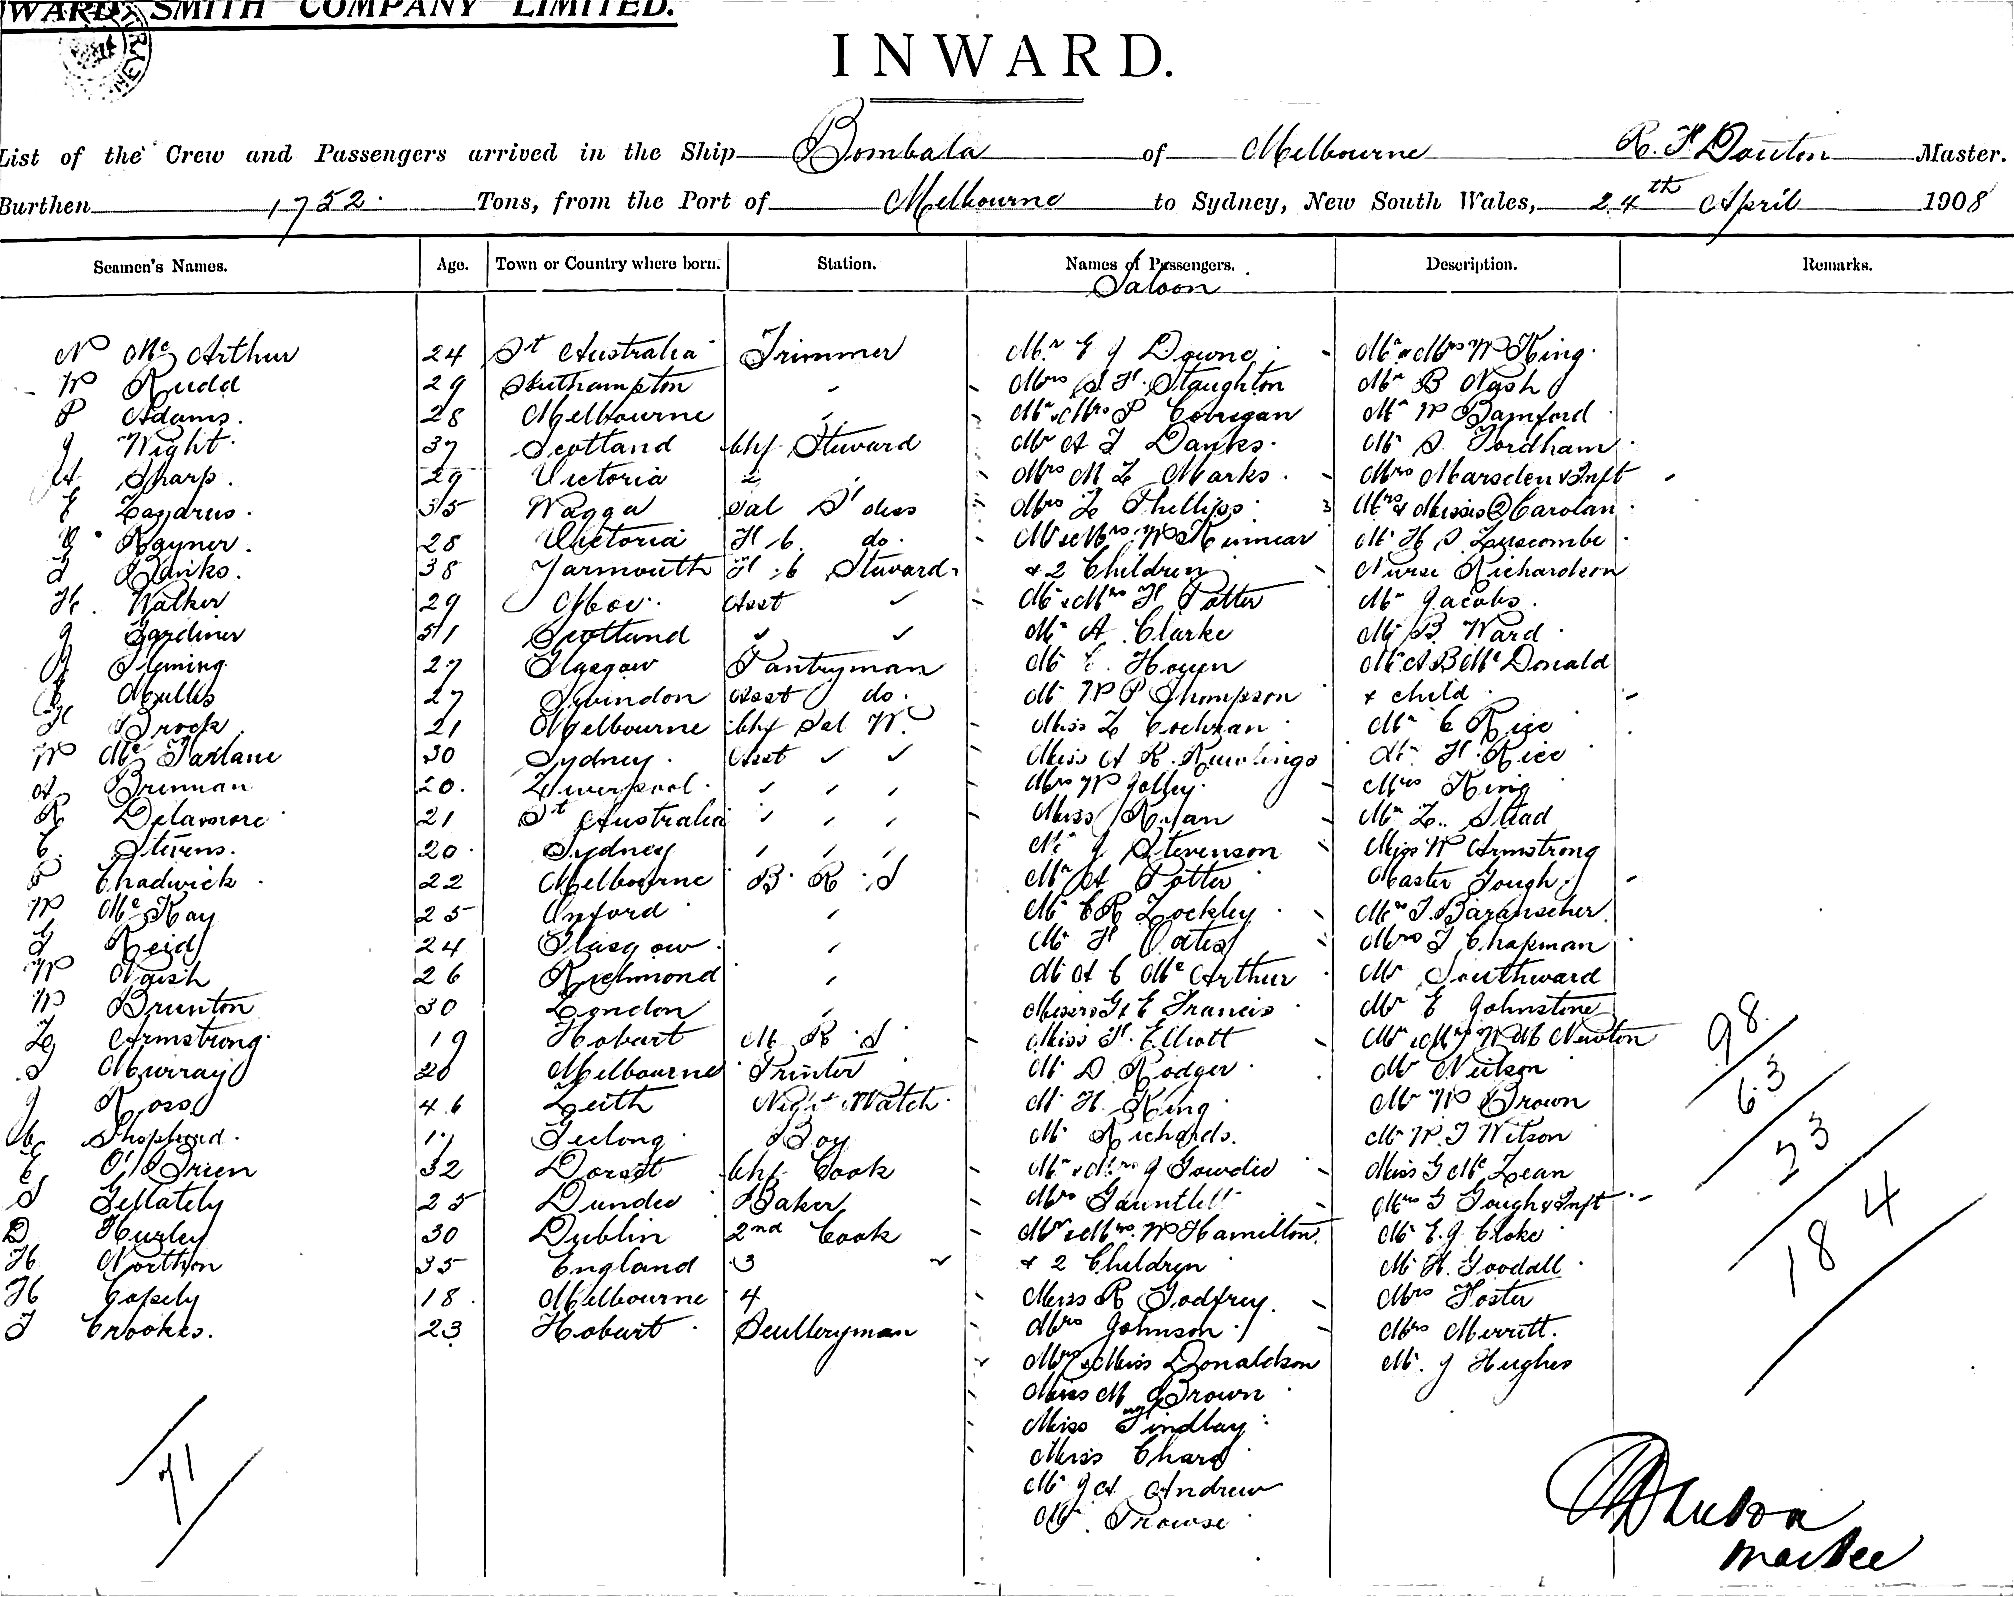 WARD, SMITH COMPANY LIMITED.
INWARD.
List of the Crew and Passengers arrived in the Ship Bombala of Melbourne R. F Douton Master.
Burthen 1752. Tons, from the Port of Melbourne to Sydney, New South Wales, 24th April 1908
Seamen's Names. Age. Town or Country where born. Station. Names of Passengers. Description. Remarks.
Saloon
N Mc Arthur 24 St Australia Trimmer Mr E J Downe Mr & Mrs W King
W Rudd 29 Southampton " Mrs S. H. Staughton Mr B Nash
P Adams. 28 Melbourne " Mr & Mrs P Corrigan Mr W Bamford
J Wight 37 Scotland Chf Steward Mr A J Danks Mr S. Fordham
A Sharp. 29 Victoria 2 " Mrs M L Marks. Mrs Marsden & Inft
E Lazarus. 35 Wagga Sal S'dess Mrs L Phillips 3 Mrs & Misses 2 Carolan
Rayner. 28 Victoria F. C. do. Mr & Mrs W Kinnear Mr H S. Luscombe
Banks. 38 Yarmouth F. C Steward & 2 Children Nurse Richardson
H. Walker 29 Asst ✓ Mr & Mrs H Potter Mr Jacobs.
J Gardiner 51 Scotland ✓ ✓ Mr A. Clarke Mr B. Ward
Fleming 27 Glasgow Pantryman Mr C. Hoyen Mr A B Mc Donald
Mullis 27 Swindon Asst do. Mr W P Thompson & child
H Brock 21 Melbourne Chf Sal W. Miss L Cochran Mr C Rice
W Mc Farlane 30 Sydney. Asst ✓ ✓ Miss A R. Rawlings Mr H. Rice
A Brennan 20. Liverpool. " " " Mrs W Jolley. Mrs King
R Delamore 21 St Australia " " " Miss Ryan Mr L. Stead
C. Stevens. 20 Sydney " " " Mr J. Stevenson Miss W Armstrong
P Chadwick 22 Melbourne B. R. S Mr A Potter Master Gough
W Mc Kay 25 Oxford " Mr C R Lockley Mr J. Baranscher
G Reid 24 Glasgow " Mr H Oates Mrs J Chapman
W Naish 26 Richmond " Mr A C Mc Arthur Mr Southward
W Brunton 30 London " Misses G & E Francis Mr E Johnstone
Armstrong 19 Hobart M. R. S Miss F. Elliott Mr & Mrs W M Newton
J Murray 20 Melbourne Printer Mr D. Rodger Mr Neilson
J Ross 46 Leith Night Watch Mr H. King Mr W Brown
Shepherd. 17 Geelong Boy Mr Richards. Mr W. J Wilson
E O'Brien 32 Dorset Chf Cook Mr & Mrs J Gowdie Miss G Mc Lean
S Gellately 25 Dundee Baker Mrs Gauntlett Mrs G Gough & Inft
D Hurley 30 Dublin 2nd Cook Mr & Mrs W Hamilton Mr E. J Cloke
H Northon 35 England 3 ✓ & 2 Children Mr H. Goodall
H Copely 18 Melbourne 4 Miss R Godfrey. Mrs Foster
J Crookes. 23 Hobart Sculleryman Mrs Johnson Mrs Merritt.
Mrs & Miss Donaldson Mr. J Hughes
Miss M Brown
Miss Findlay
Miss Chard
Mr J A Andrew
Mr. Prowse
98
63
23
184
71
Master